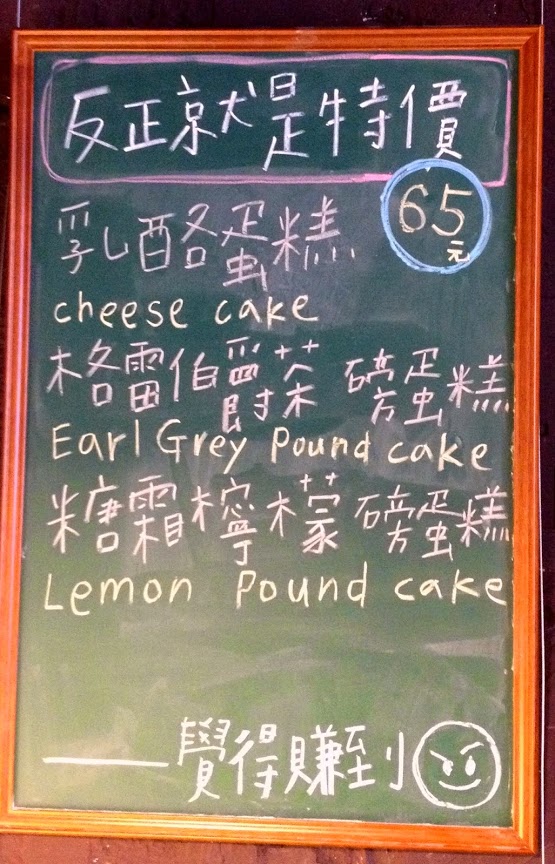 反正就是特價
65元
乳酪蛋糕
cheese cake
格雷伯爵茶 磅蛋糕
Earl Grey Pound cake
糖霜檸檬 磅蛋糕
Lemon Pound cake
——覺得賺到